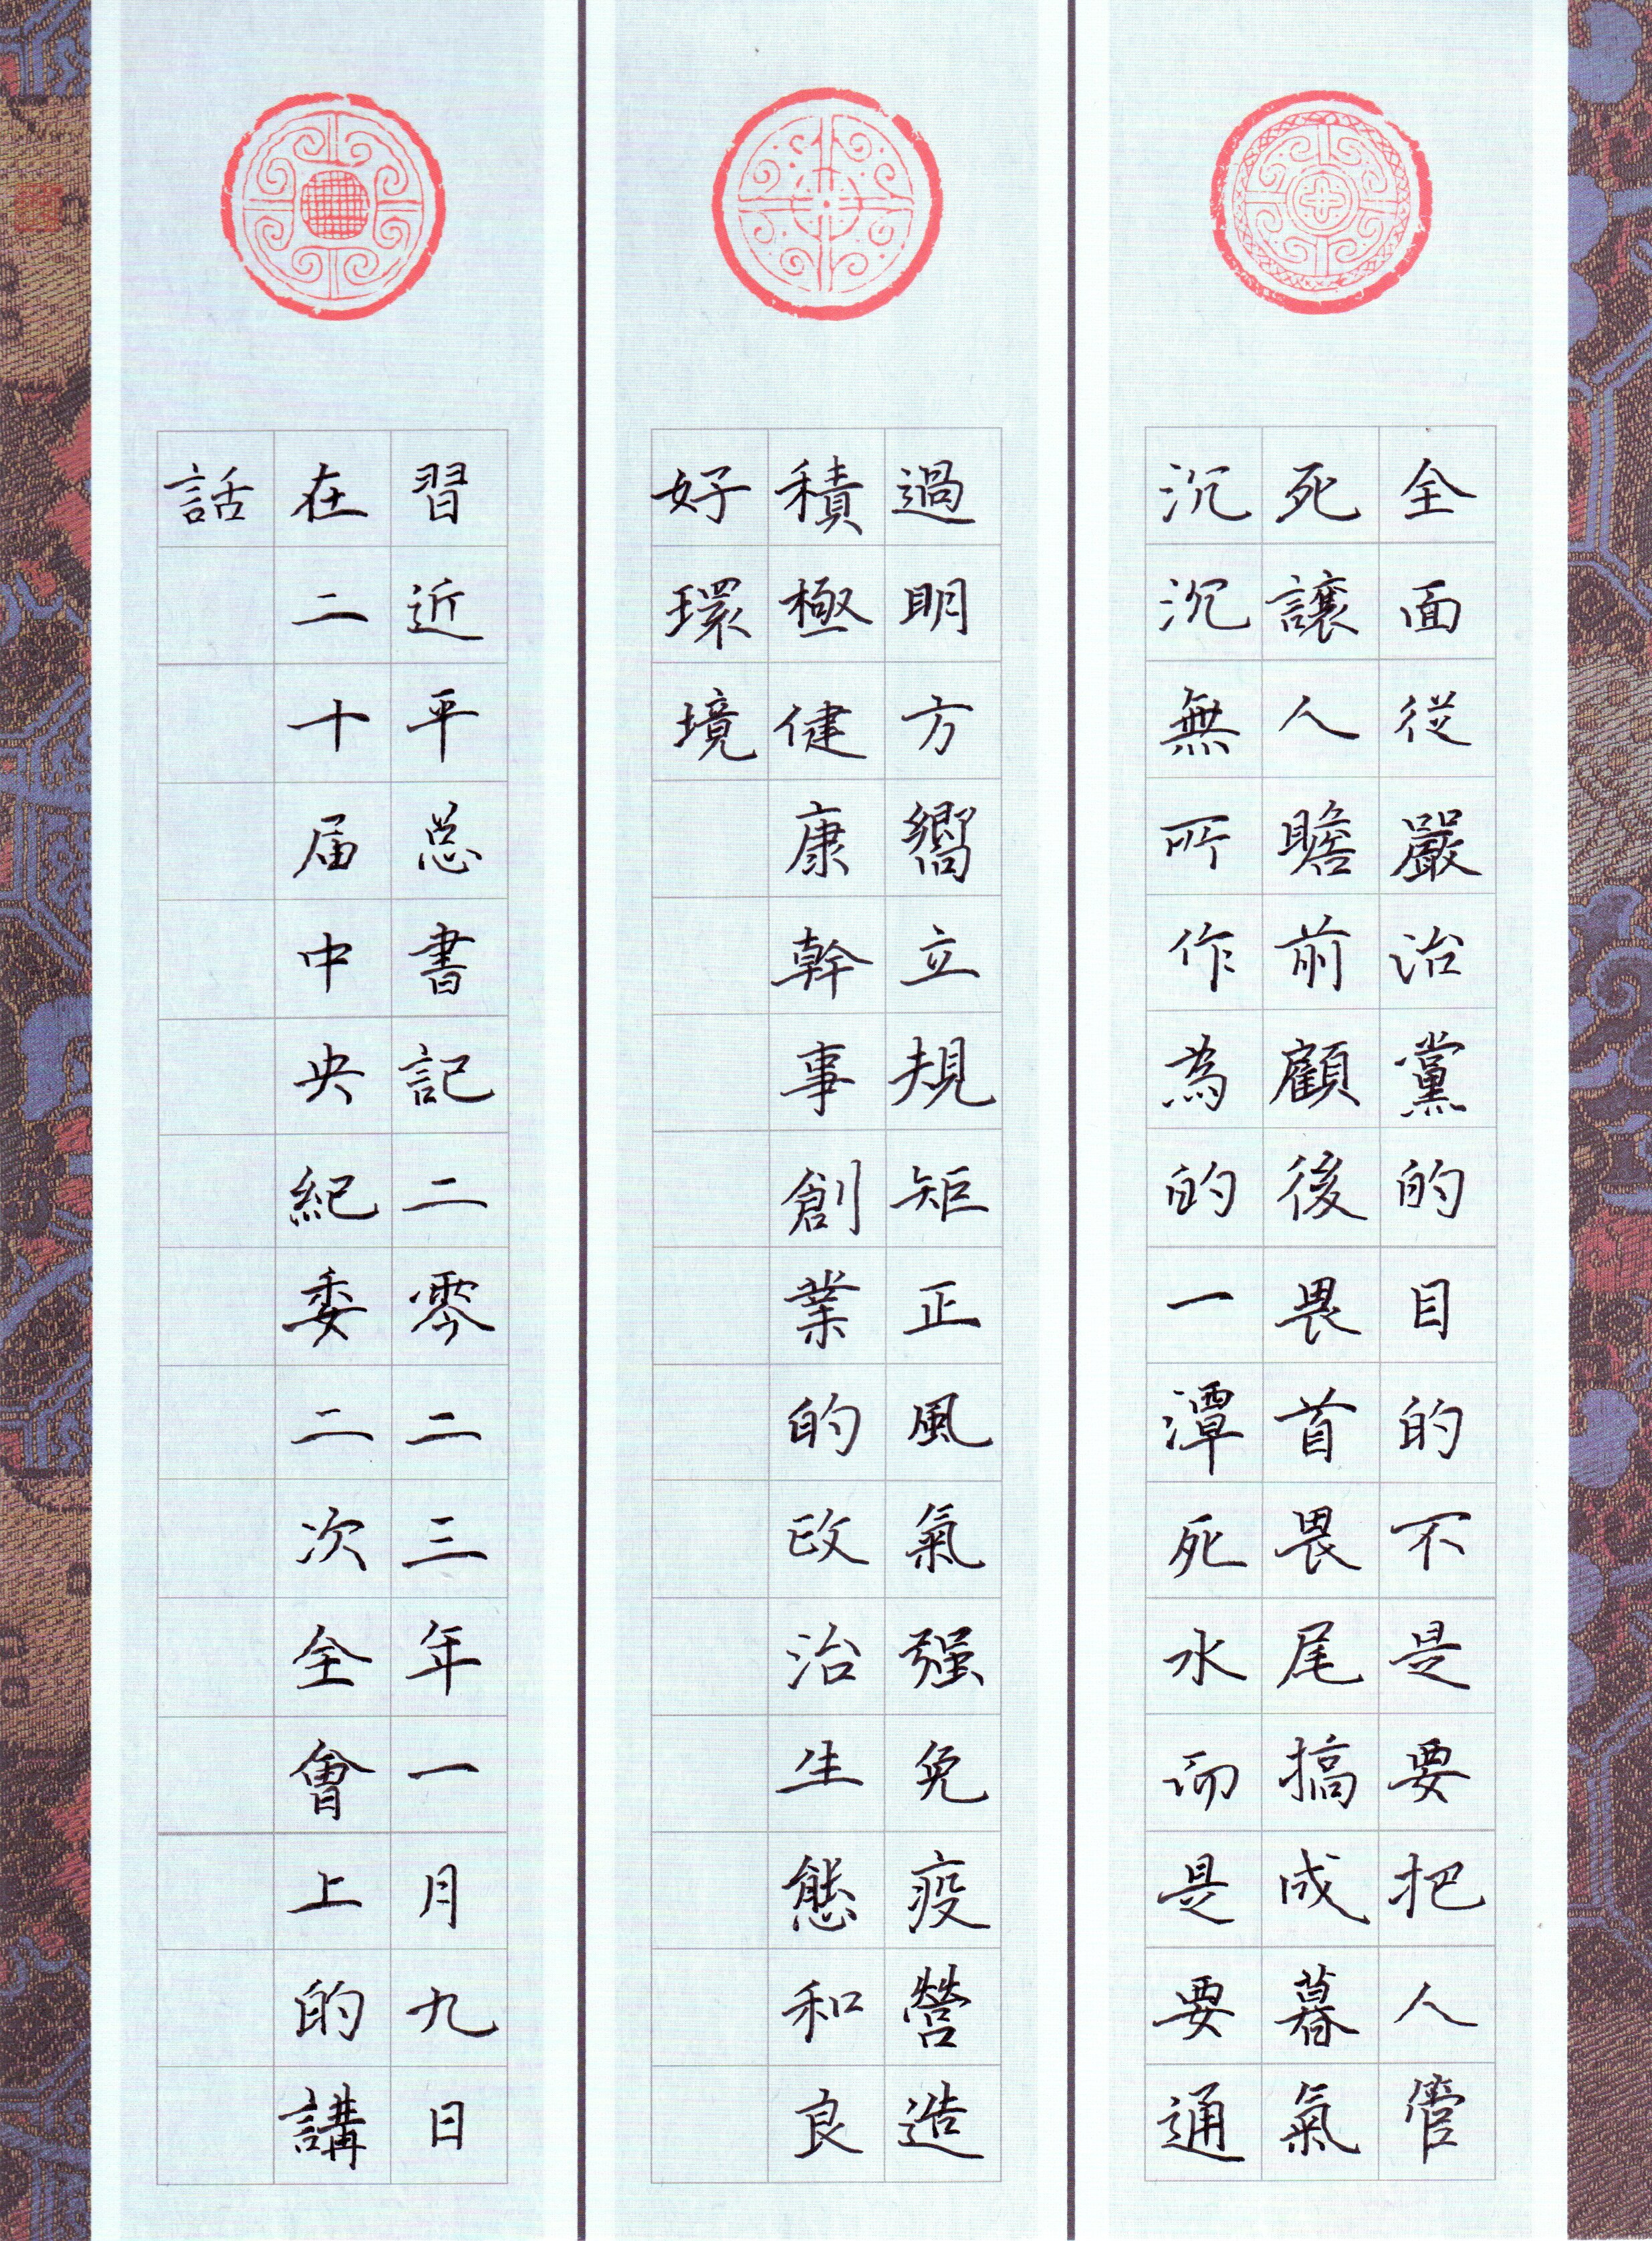 全面從嚴治黨的目的不是要把人管
死讓人瞻前顧後畏首畏尾搞成暮氣
沉沉無所作為的一潭死水而是要通
過明方嚮立規矩正風氣强免疫營造
積極健康幹事創業的政治生態和良
好環境
習近平总書記二零二三年一月九日
在二十届中央紀委二次全會上的講
話